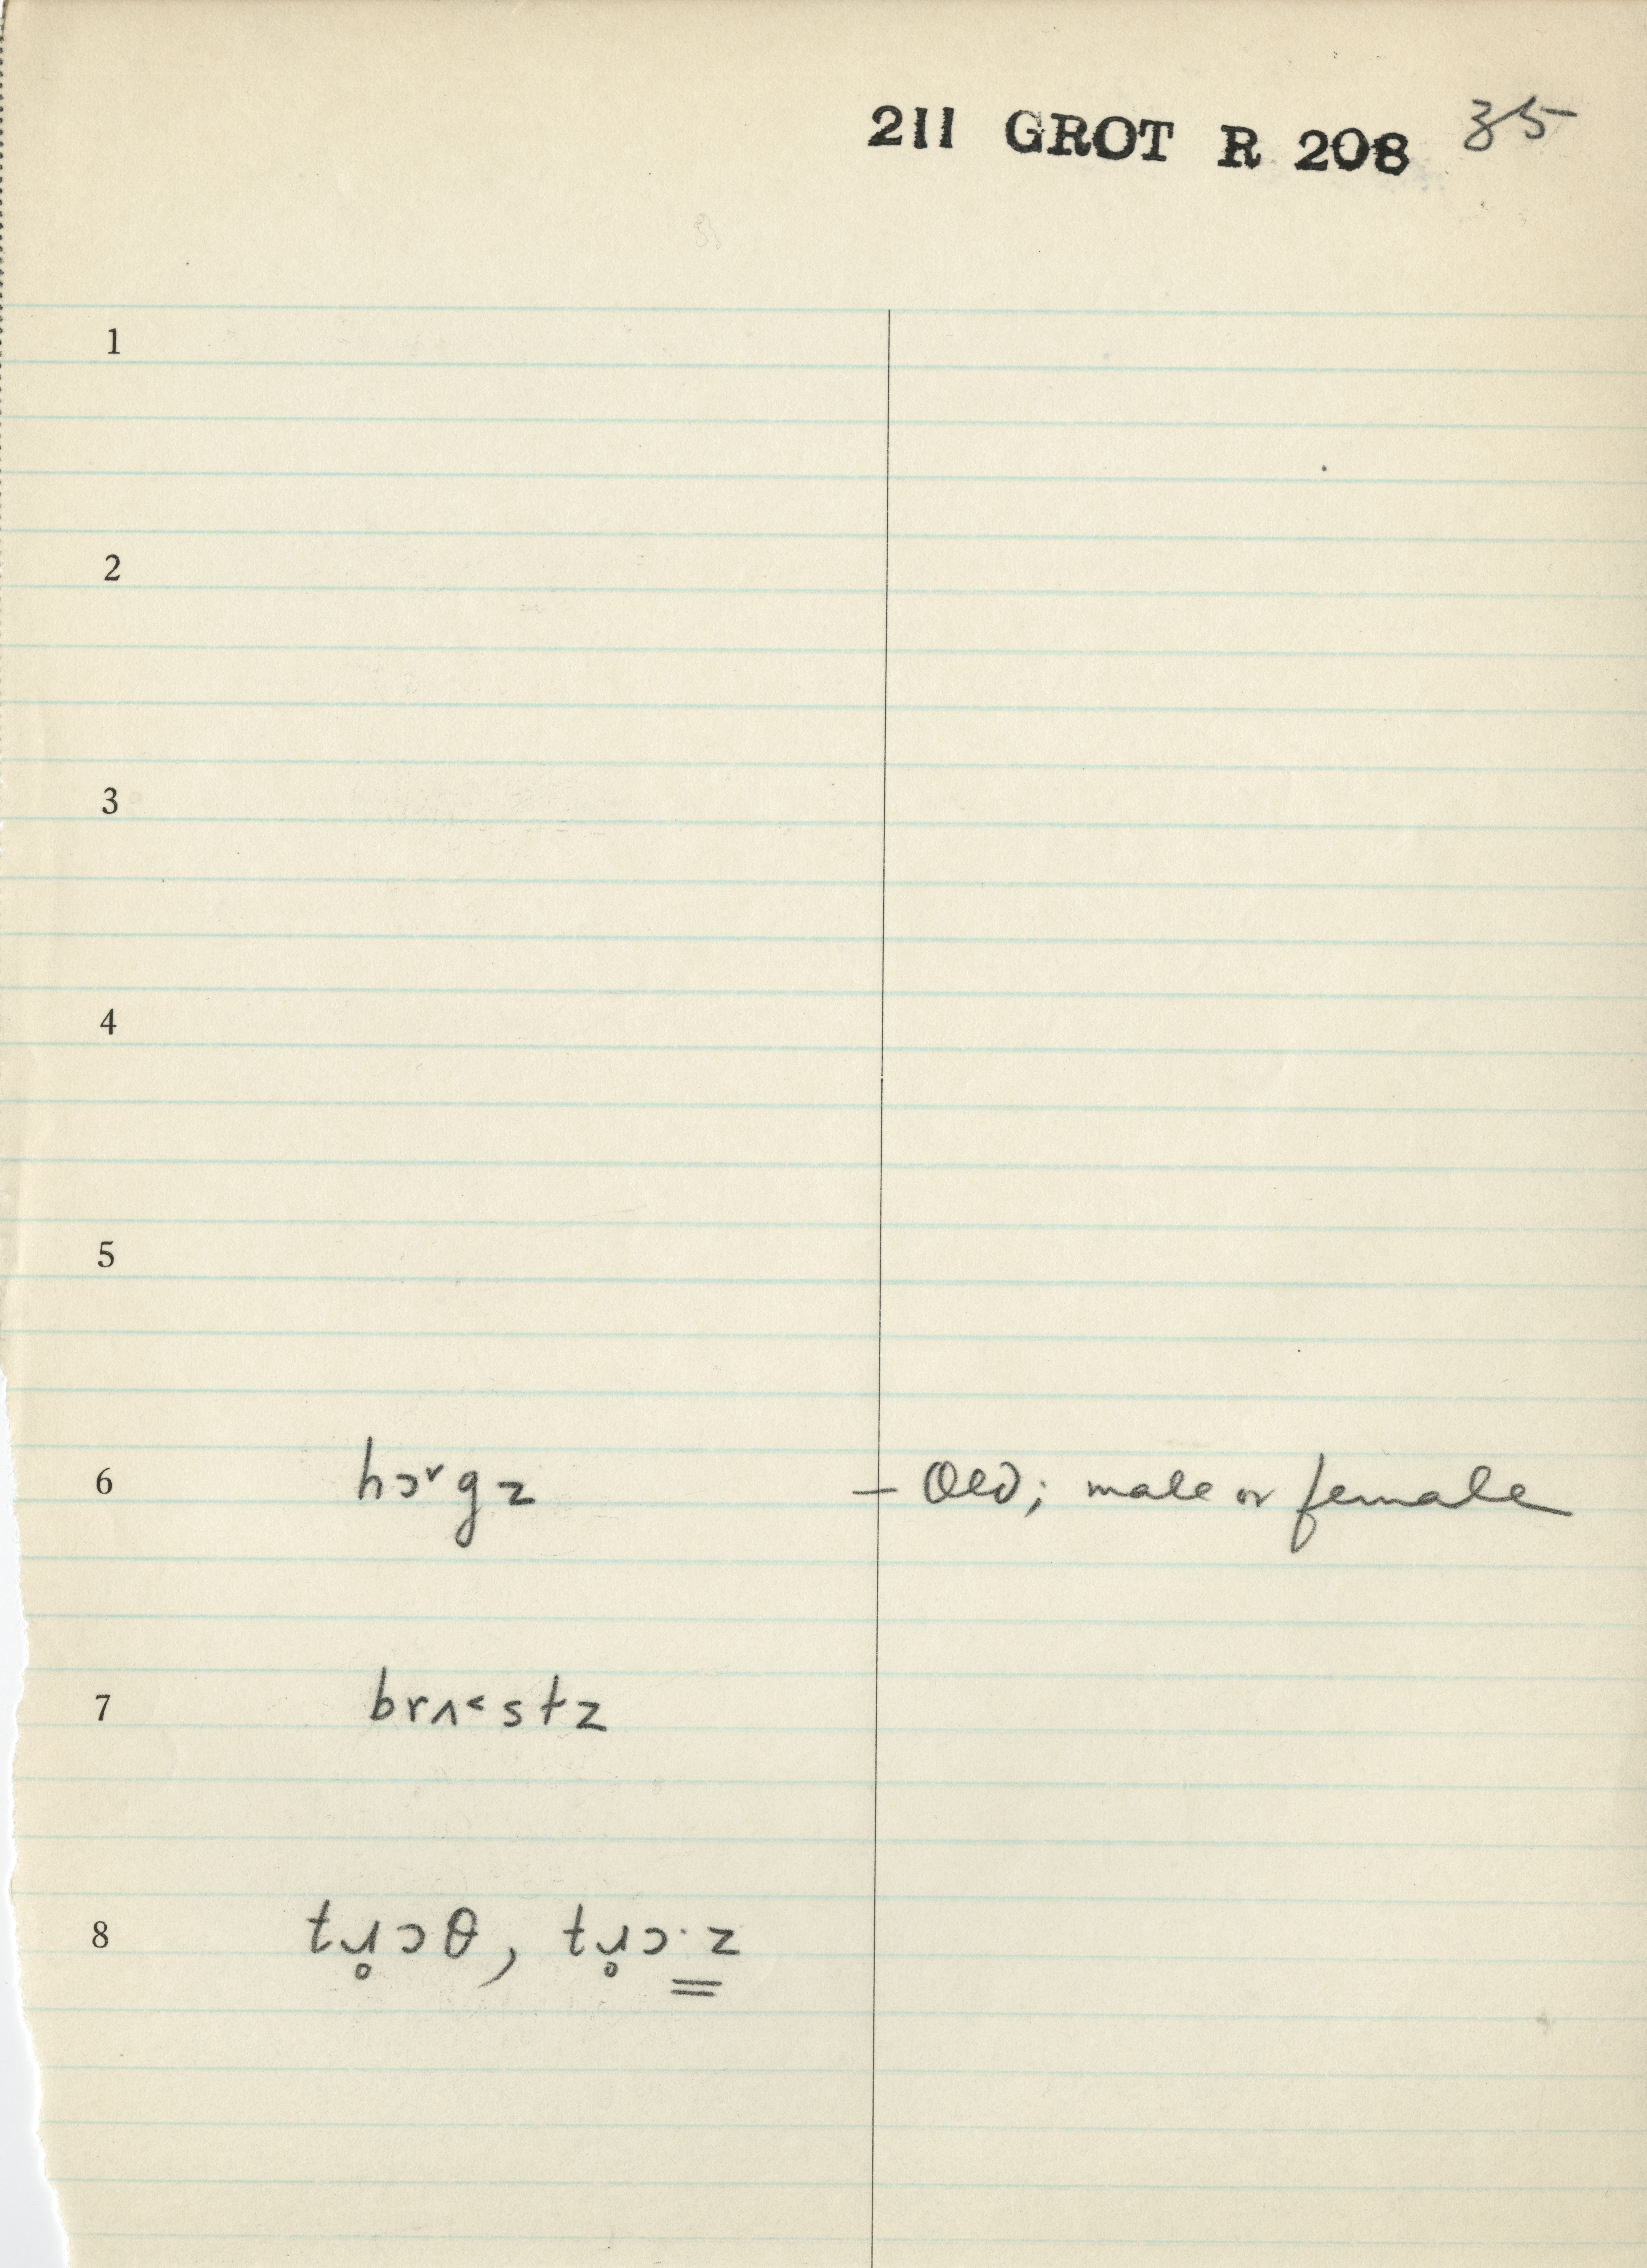 211 GROT R 208 35
1
2
3
4
5
6 hɔ˅gz – Old; male or female
7 brʌ˂stz
8 tɹ̥ɔθ, tɹ̥ɔ·z